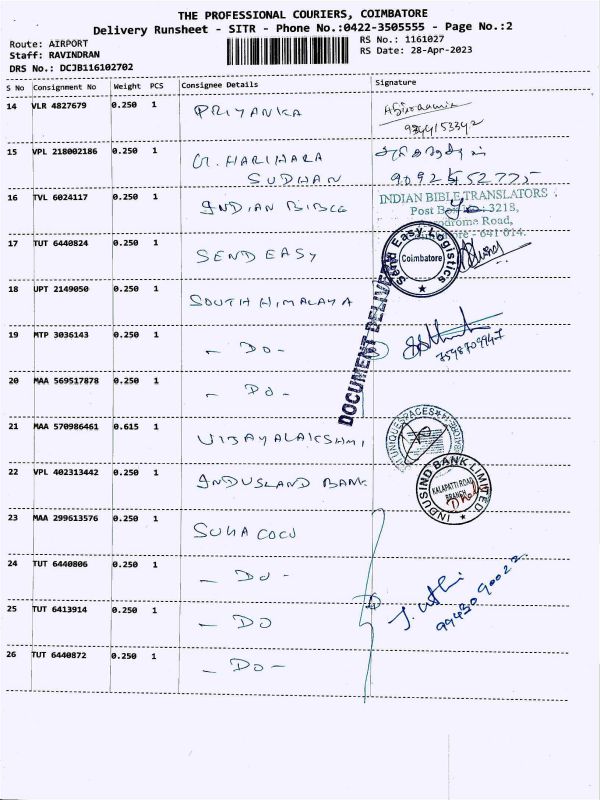 THE PROFESSIONAL COURIERS, COIMBATORE
Delivery Runsheet - SITR - Phone No.:0422-3505555 - Page No.:2
Route: AIRPORT
RS No.: 1161027
Staff: RAVINDRAN
RS Date: 28-Apr-2023
DRS No.: DCJB116102702
S No Consignment No Weight PCS Consignee Details Signature
14 VLR 4827679 0.250 1 PRIYANKA
15 VPL 218002186 0.250 1 HARIHARA
SUDHAN
16 TVL 6024117 0.250 1 INDIAN BIBLE
INDIAN BIBLE TRANSLATORS
Post 3218,
Road,
- 641 014.
17 TUT 6440824 0.250 1 SEND EASY
Send Easy Logistics
Coimbatore
18 UPT 2149050 0.250 1 SOUTH HIMALAYA
DOCUMENT DELIVERY
19 MTP 3036143 0.250 1 - DO -
7598709947
20 MAA 569517878 0.250 1 - DO -
21 MAA 570986461 0.615 1 VIJAYALAKSHMI
UNIQUESPACES
22 VPL 402313442 0.250 1 INDUSLAND BANK
INDUSIND BANK LIMITED
KALAPATTI ROAD
BRANCH
23 MAA 299613576 0.250 1 SUHA COCO
24 TUT 6440806 0.250 1 - DO -
25 TUT 6413914 0.250 1 - DO
9943090022
26 TUT 6440872 0.250 1 - DO -